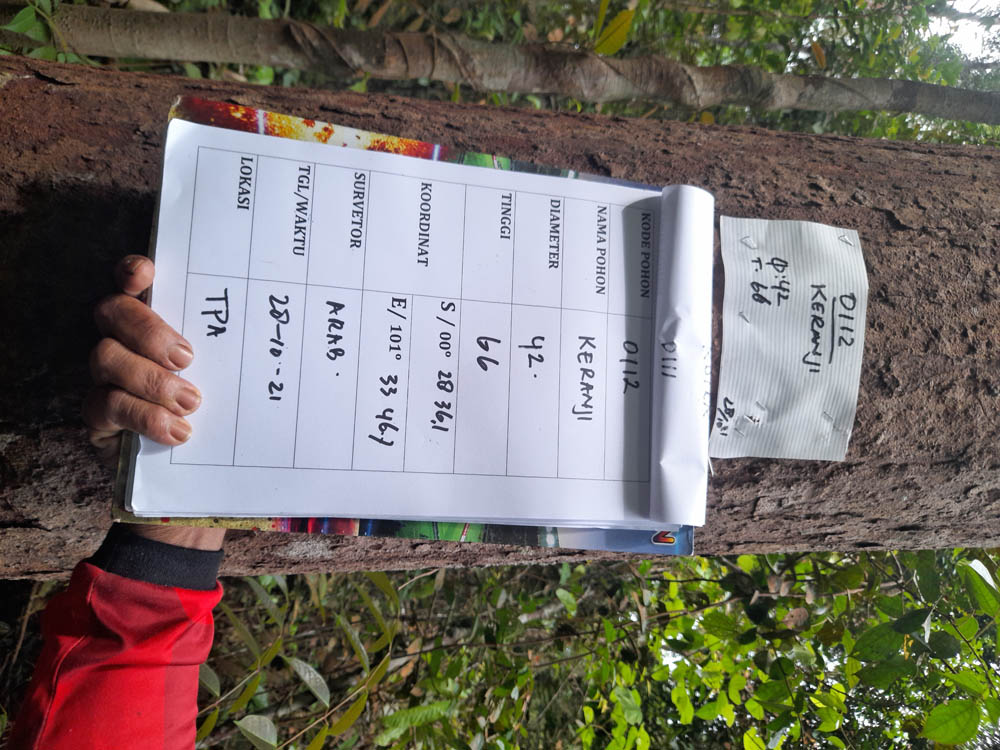 0112
KERANJI
Φ: 42
T. 66
28/10-21
0111
KODE POHON 0112
NAMA POHON KERANJI
DIAMETER 42.
TINGGI 66
KOORDINAT S / 00° 28 36,1
E/ 101° 33 46.7
SURVETOR ARAB.
TGL/WAKTU 28-10-21
LOKASI TPA